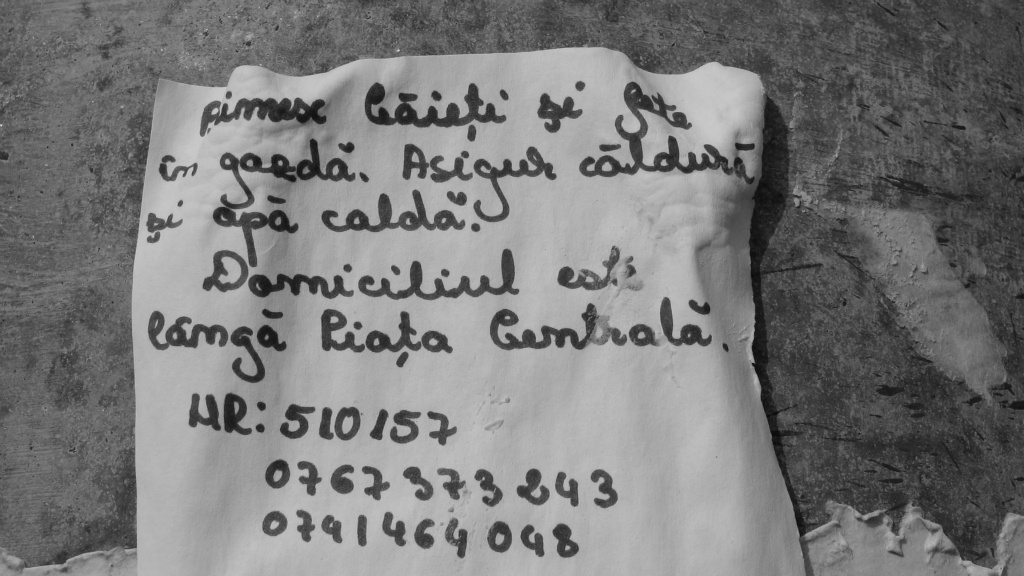 primesc băieți și fete
în gazdă. Asigur căldură
și apă caldă.
Domiciliul este
lângă Piața Centrală.
NR: 510157
0767 373 243
0741464048